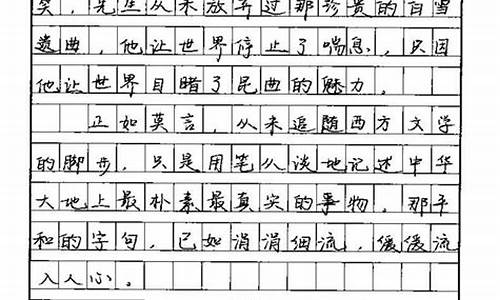 笑，先生从未放弃过那珍贵的白雪
遗曲，他让世界停止了喘息，只因
他让世界目睹了昆曲的魅力。
正如莫言，从未追随西方文学
的脚步，只是用笔从淡地记述中华
大地上最朴素最真实的事物。那平
和的字句，已如涓涓细流，缓缓流
入人心。